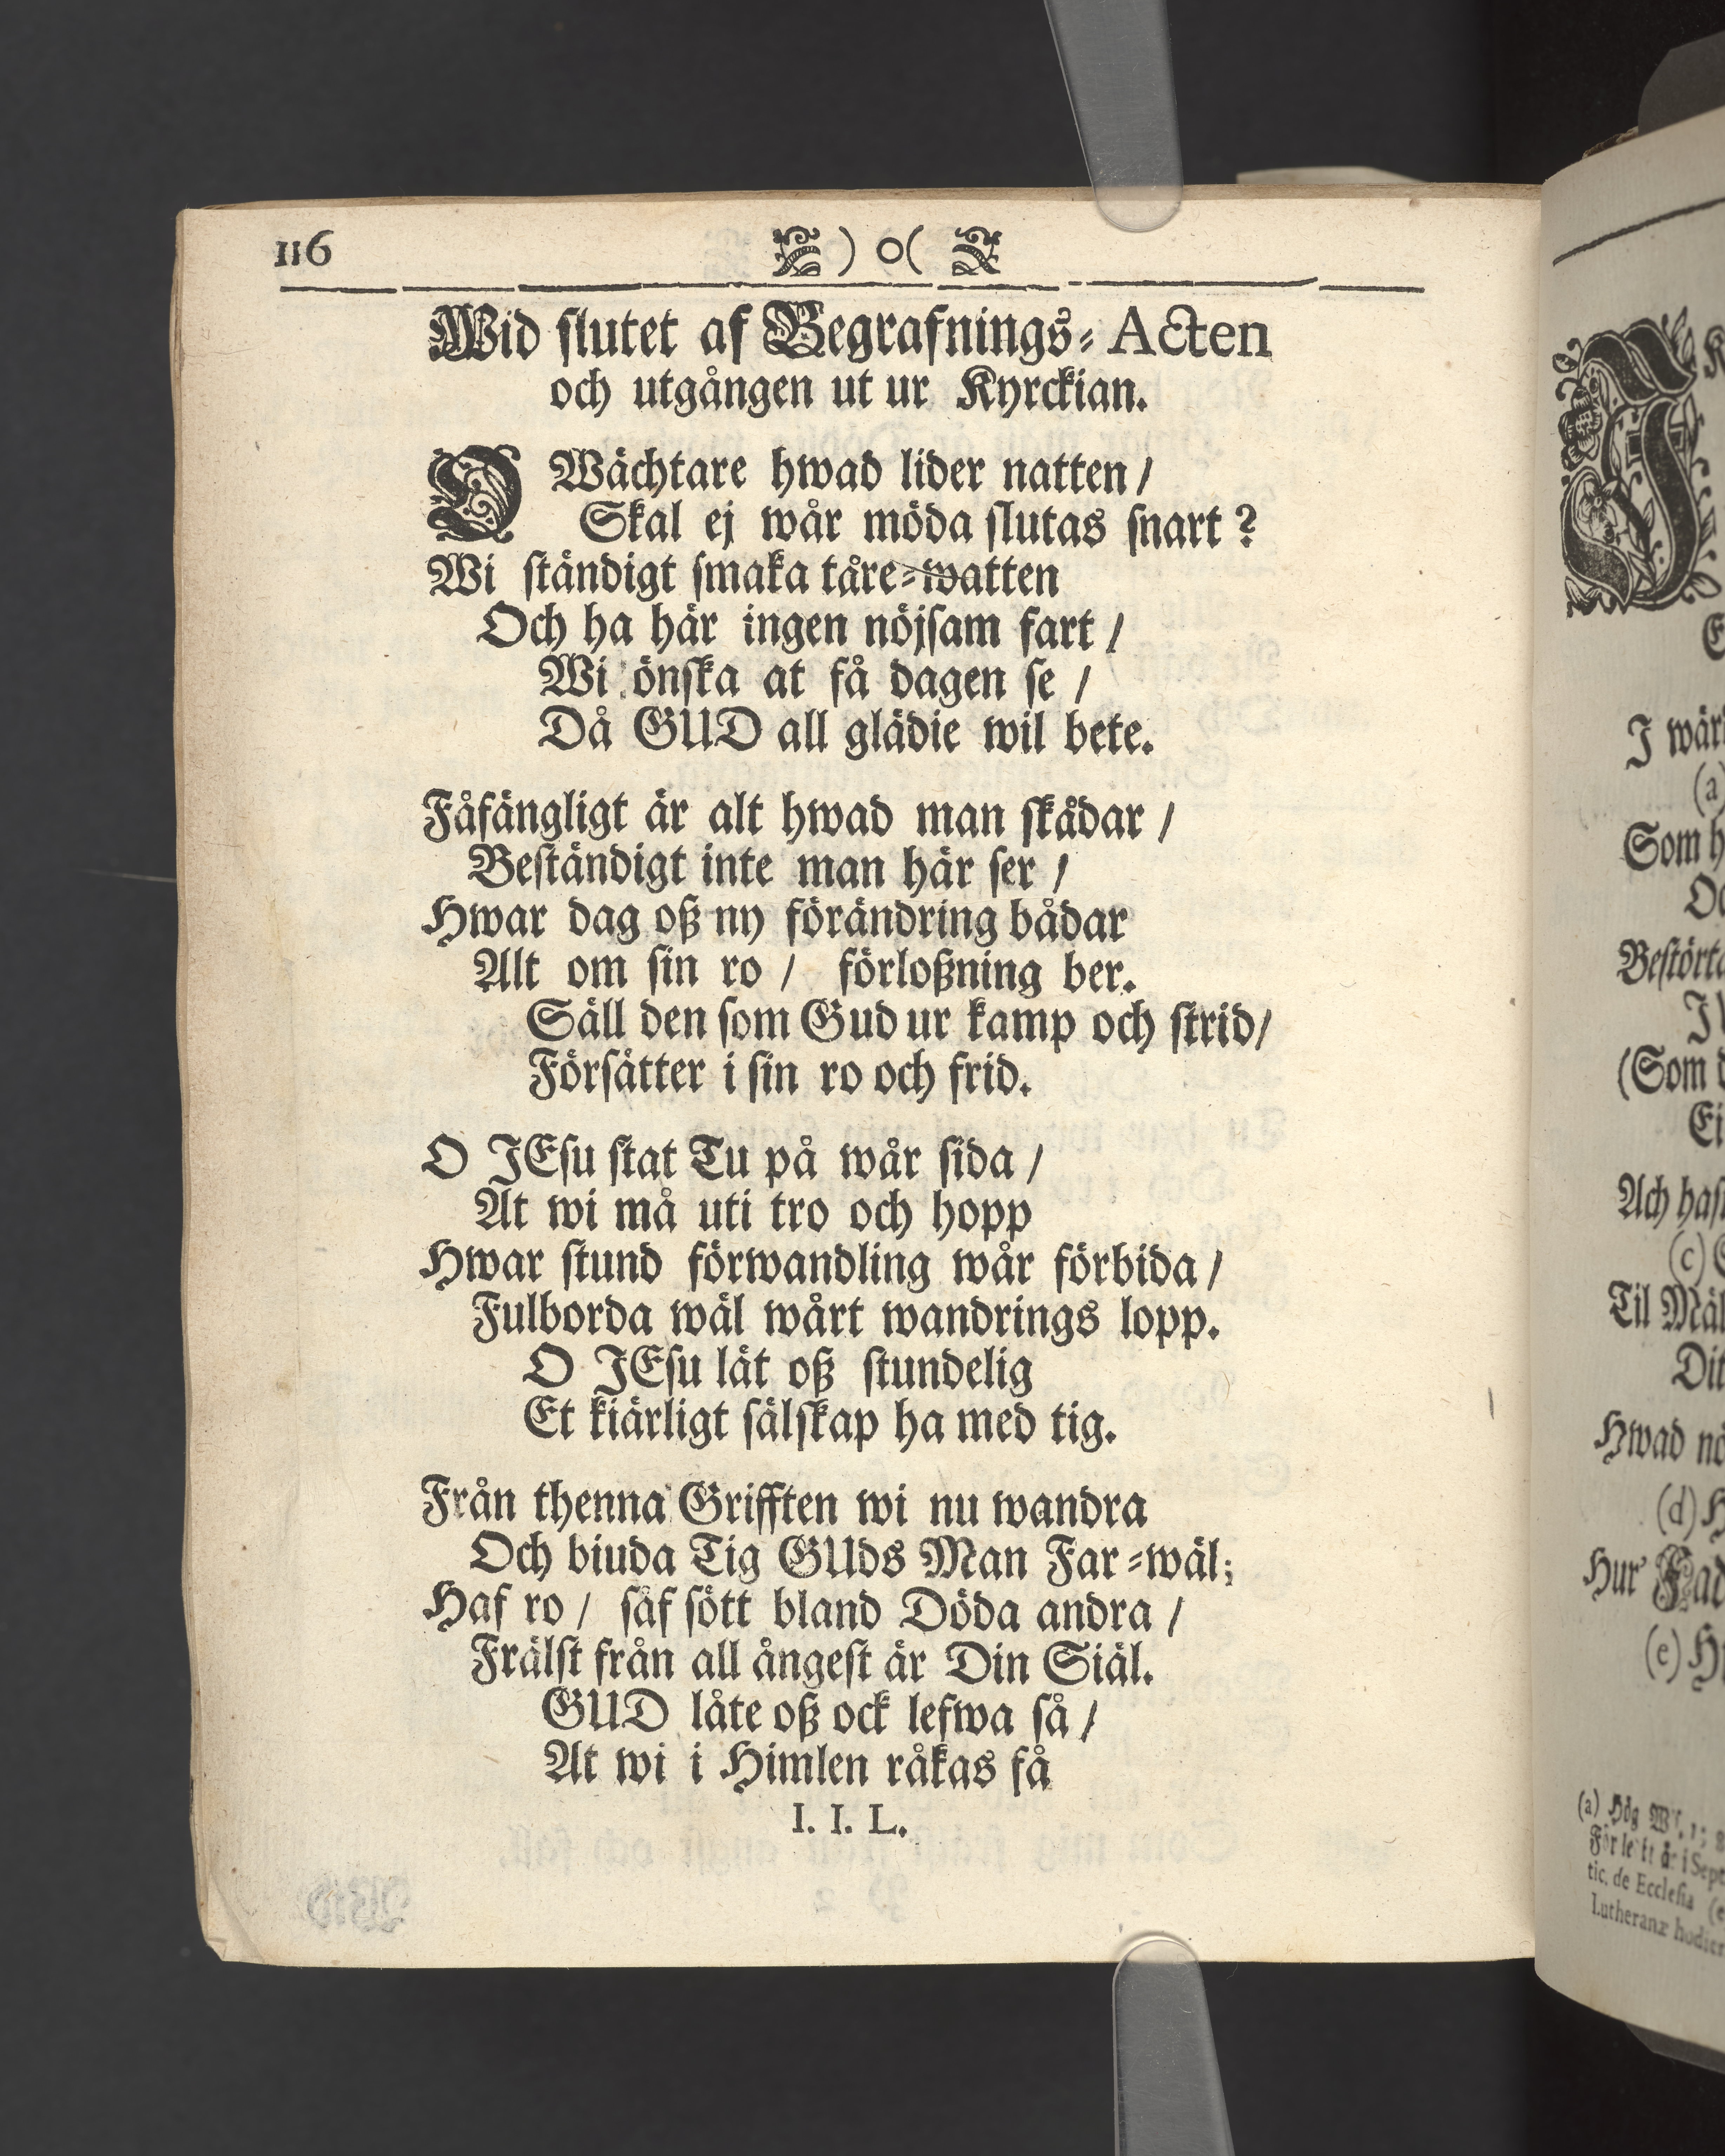 116 ) o (
Wid slutet af Begrafnings-Acten
och utgången ut ur Kyrckian.
O Wächtare hwad lider natten /
Skal ej wår möda slutas snart ?
Wi ständigt smaka tåre-watten
Och ha här ingen nöjsam fart /
Wi önska at få dagen se /
Då GUD all glädie wil bete.
Fåfängligt är alt hwad man skådar /
Beständigt inte man här ser /
Hwar dag oß ny förändring bådar
Alt om sin ro / förloßning ber.
Säll den som Gud ur kamp och strid /
Försätter i sin ro och frid.
O JEsu stat Tu på wår sida /
At wi må uti tro och hopp
Hwar stund förwandling wår förbida /
Fulborda wäl wårt wandrings lopp.
O JEsu lät oß stundelig
Et kiärligt sälskap ha med tig.
Från thenna Grifften wi nu wandra
Och biuda Tig GUds Man Far-wäl;
Haf ro / såf sött bland Döda andra /
Frälst från all ångest är Din Siäl.
GUD låte oß ock lefwa så /
At wi i Himlen råkas få
I. I. L.
J wär
(a)
Som h
Bestört
(Som
Ach
(c)
Til
Hwad
(d)
Hur
(e)
(a) Hög
tic. de Ecclesia
Lutheranæ